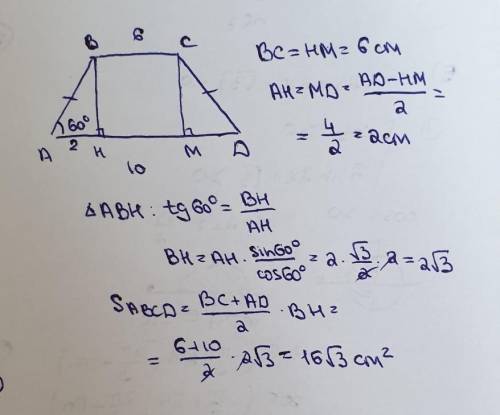 B 6 C
A 60° 2 H M D
10
BC = HM = 6 см
AH = MD = \frac{AD-HM}{2} =
= \frac{4}{2} = 2 см
△ABH: tg 60° = \frac{BH}{AH}
BH = AH · \frac{sin 60°}{cos 60°} = 2 · \frac{√3}{2} · 2 = 2√3
S_{ABCD} = \frac{BC+AD}{2} · BH =
= \frac{6+10}{2} · 2√3 = 16√3 см²